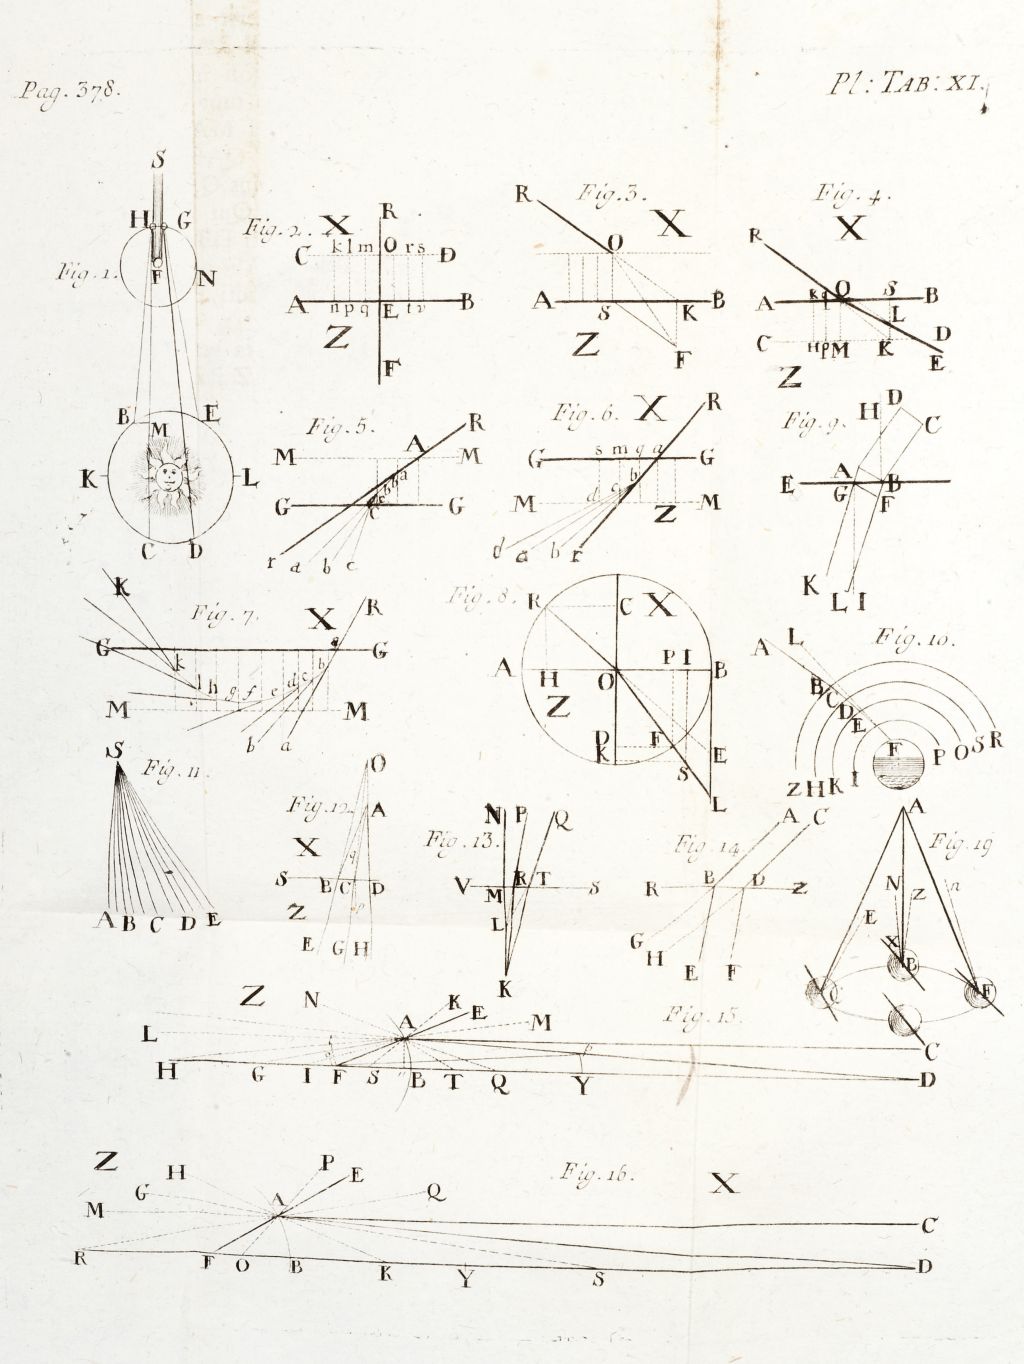 Pag. 378.
Pl: TAB: XI.
S
H G
Fig. 1.
F N
B E
M
K L
C D
Fig. 2.
X R
C k l m O r s D
A n p q E t v B
Z
F
Fig. 3.
R X
O
A S K B
Z F
Fig. 4.
X
R
A O S B
L
C H p M K D
E
Z
Fig. 5.
R
M A M
G G
r a b c
Fig. 6.
X R
G s m q a G
b
c
d
M M
Z
d a b r
Fig. 9.
H D
C
E A B
G F
K
L I
Fig. 7.
K
X R
G a G
k l h g f e d c b
M M
b a
Fig. 8.
R C X
A H O P I B
Z
D
K F E
S
L
Fig. 10.
A L
B C D E
F
Z H K I P O S R
Fig. 11.
S
A B C D E
Fig. 12.
O
A
X
q
S B C D
Z p
E G H
Fig. 13.
N P Q
V M R T S
L
K
Fig. 14.
A C
R B D Z
G
H E F
Fig. 19
A
N Z n
E
X B
C F
Fig. 15.
Z N K E
L A M
C
H G I F S B T Q Y D
Fig. 16.
Z H P E X
G Q
M A C
R F O B K Y S D